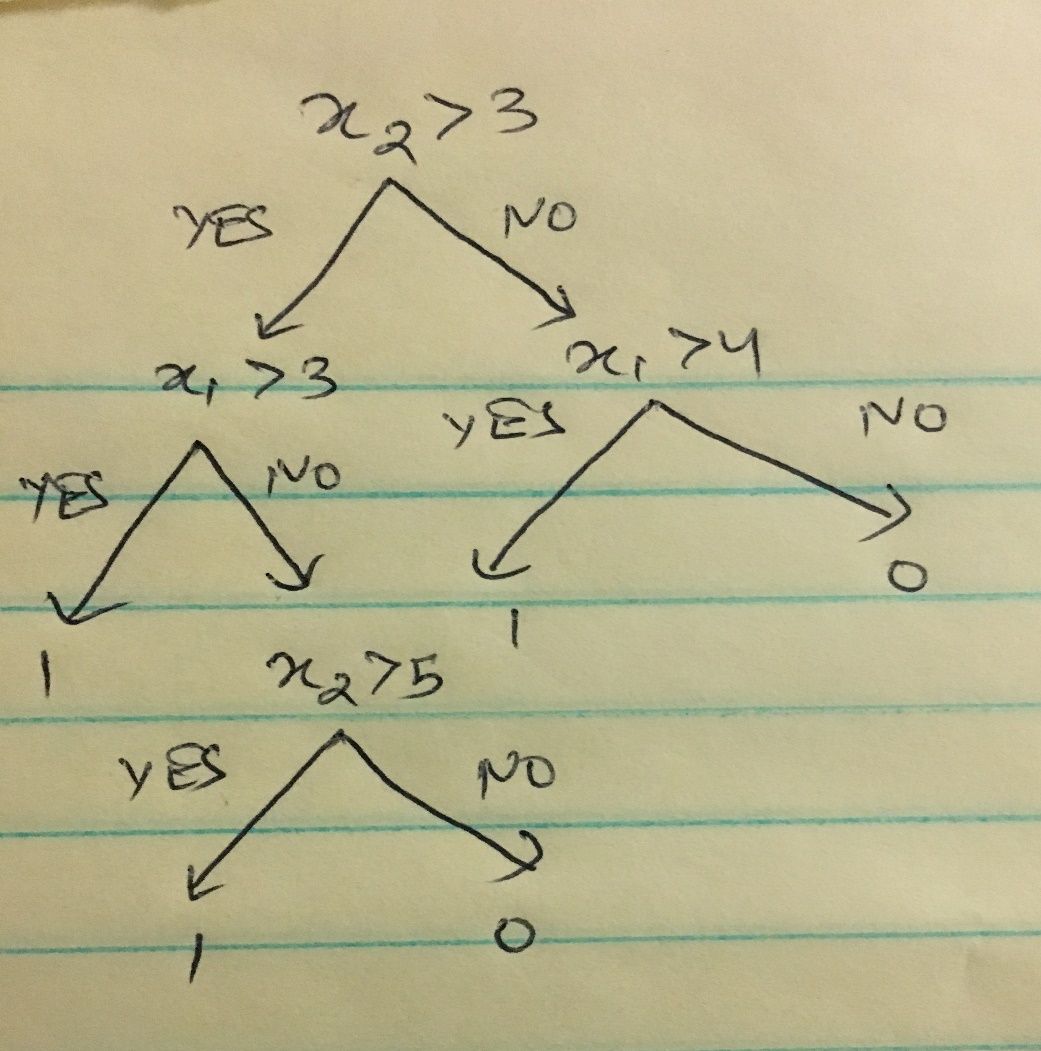 x₂ > 3
YES NO
x₁ > 3 x₁ > 4
YES NO YES NO
1 1 0
x₂ > 5
YES NO
1 0